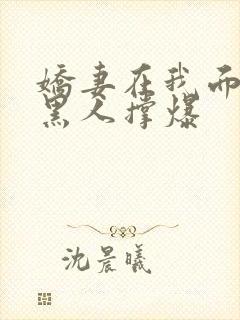 娇妻在我面
黑人撑爆
沈晨曦